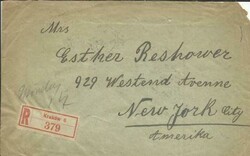 Mrs
Esther Reshower
929 Westend Avenne
New York cg
Amerika
R
KRAKÓW 2
379